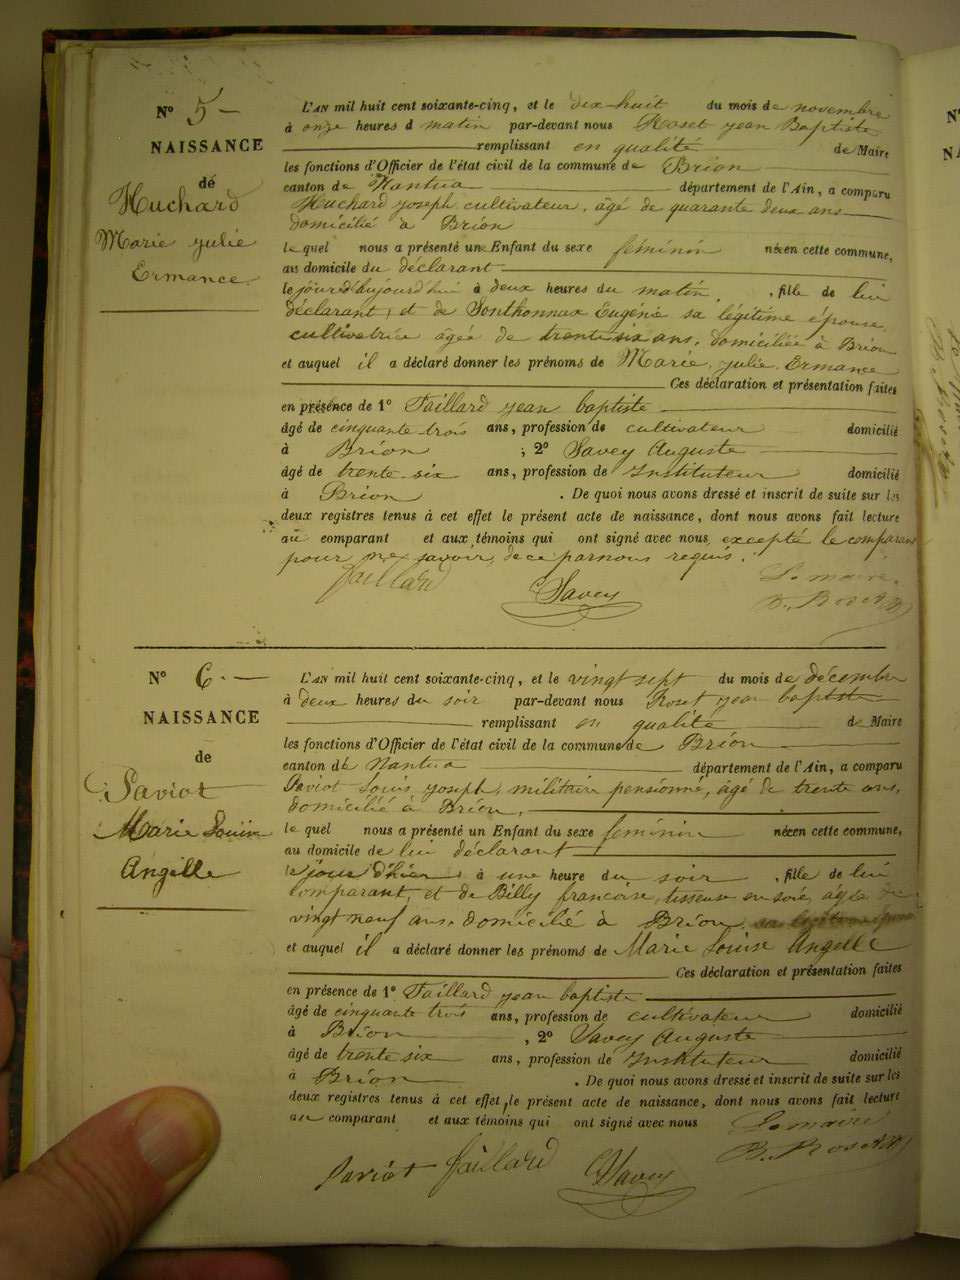 N° 5
NAISSANCE
de
Huchard
Marie julie
Ermance
L'AN mil huit cent soixante-cinq, et le dix-huit du mois de novembre
à onze heures d matin par-devant nous Roset jean Baptiste
remplissant en qualité de Maire
les fonctions d'Officier de l'état civil de la commune de Brion
canton de Nantua département de l'Ain, a comparu
Huchard joseph cultivateur, âgé de quarante deux ans
domicilié à Brion
le quel nous a présenté un Enfant du sexe féminin né en cette commune,
au domicile du déclarant
le jour d'aujourd'hui à deux heures du matin, fille de lui
déclarant, et de Sonthonnax Eugénie sa légitime épouse,
cultivatrice âgée de trente six ans, domiciliée à Brion
et auquel il a déclaré donner les prénoms de Marie, julie, Ermance
Ces déclaration et présentation faites
en présence de 1° Taillard jean baptiste
âgé de cinquante trois ans, profession de cultivateur domicilié
à Brion ; 2° Savey Auguste
âgé de trente six ans, profession de Instituteur domicilié
à Brion . De quoi nous avons dressé et inscrit de suite sur les
deux registres tenus à cet effet le présent acte de naissance, dont nous avons fait lecture
au comparant et aux témoins qui ont signé avec nous, excepté le comparant
pour ne savoir, de ce par nous requis.
Taillard Savey Le maire
B. Roset
N° 6
NAISSANCE
de
Paviot
Marie Louise
Angelle
L'AN mil huit cent soixante-cinq, et le vingt sept du mois de décembre
à deux heures du soir par-devant nous Roset jean baptiste
remplissant en qualité de Maire
les fonctions d'Officier de l'état civil de la commune de Brion
canton de Nantua département de l'Ain, a comparu
Paviot Louis joseph, militaire pensionné, âgé de trente ans,
domicilié à Brion,
le quel nous a présenté un Enfant du sexe féminin né en cette commune,
au domicile de lui déclarant
le jour d'hier à une heure du soir , fille de lui
comparant, et de Billy françoise, tisseuse en soie, âgée de
vingt neuf ans, domicilié à Brion, sa légitime épouse
et auquel il a déclaré donner les prénoms de Marie Louise Angelle
Ces déclaration et présentation faites
en présence de 1° Taillard jean baptiste
âgé de cinquante trois ans, profession de cultivateur domicilié
à Brion , 2° Savey Auguste
âgé de trente six ans, profession de Instituteur domicilié
à Brion . De quoi nous avons dressé et inscrit de suite sur les
deux registres tenus à cet effet le présent acte de naissance, dont nous avons fait lecture
au comparant et aux témoins qui ont signé avec nous Le maire
B. Roset
Paviot Taillard Savey